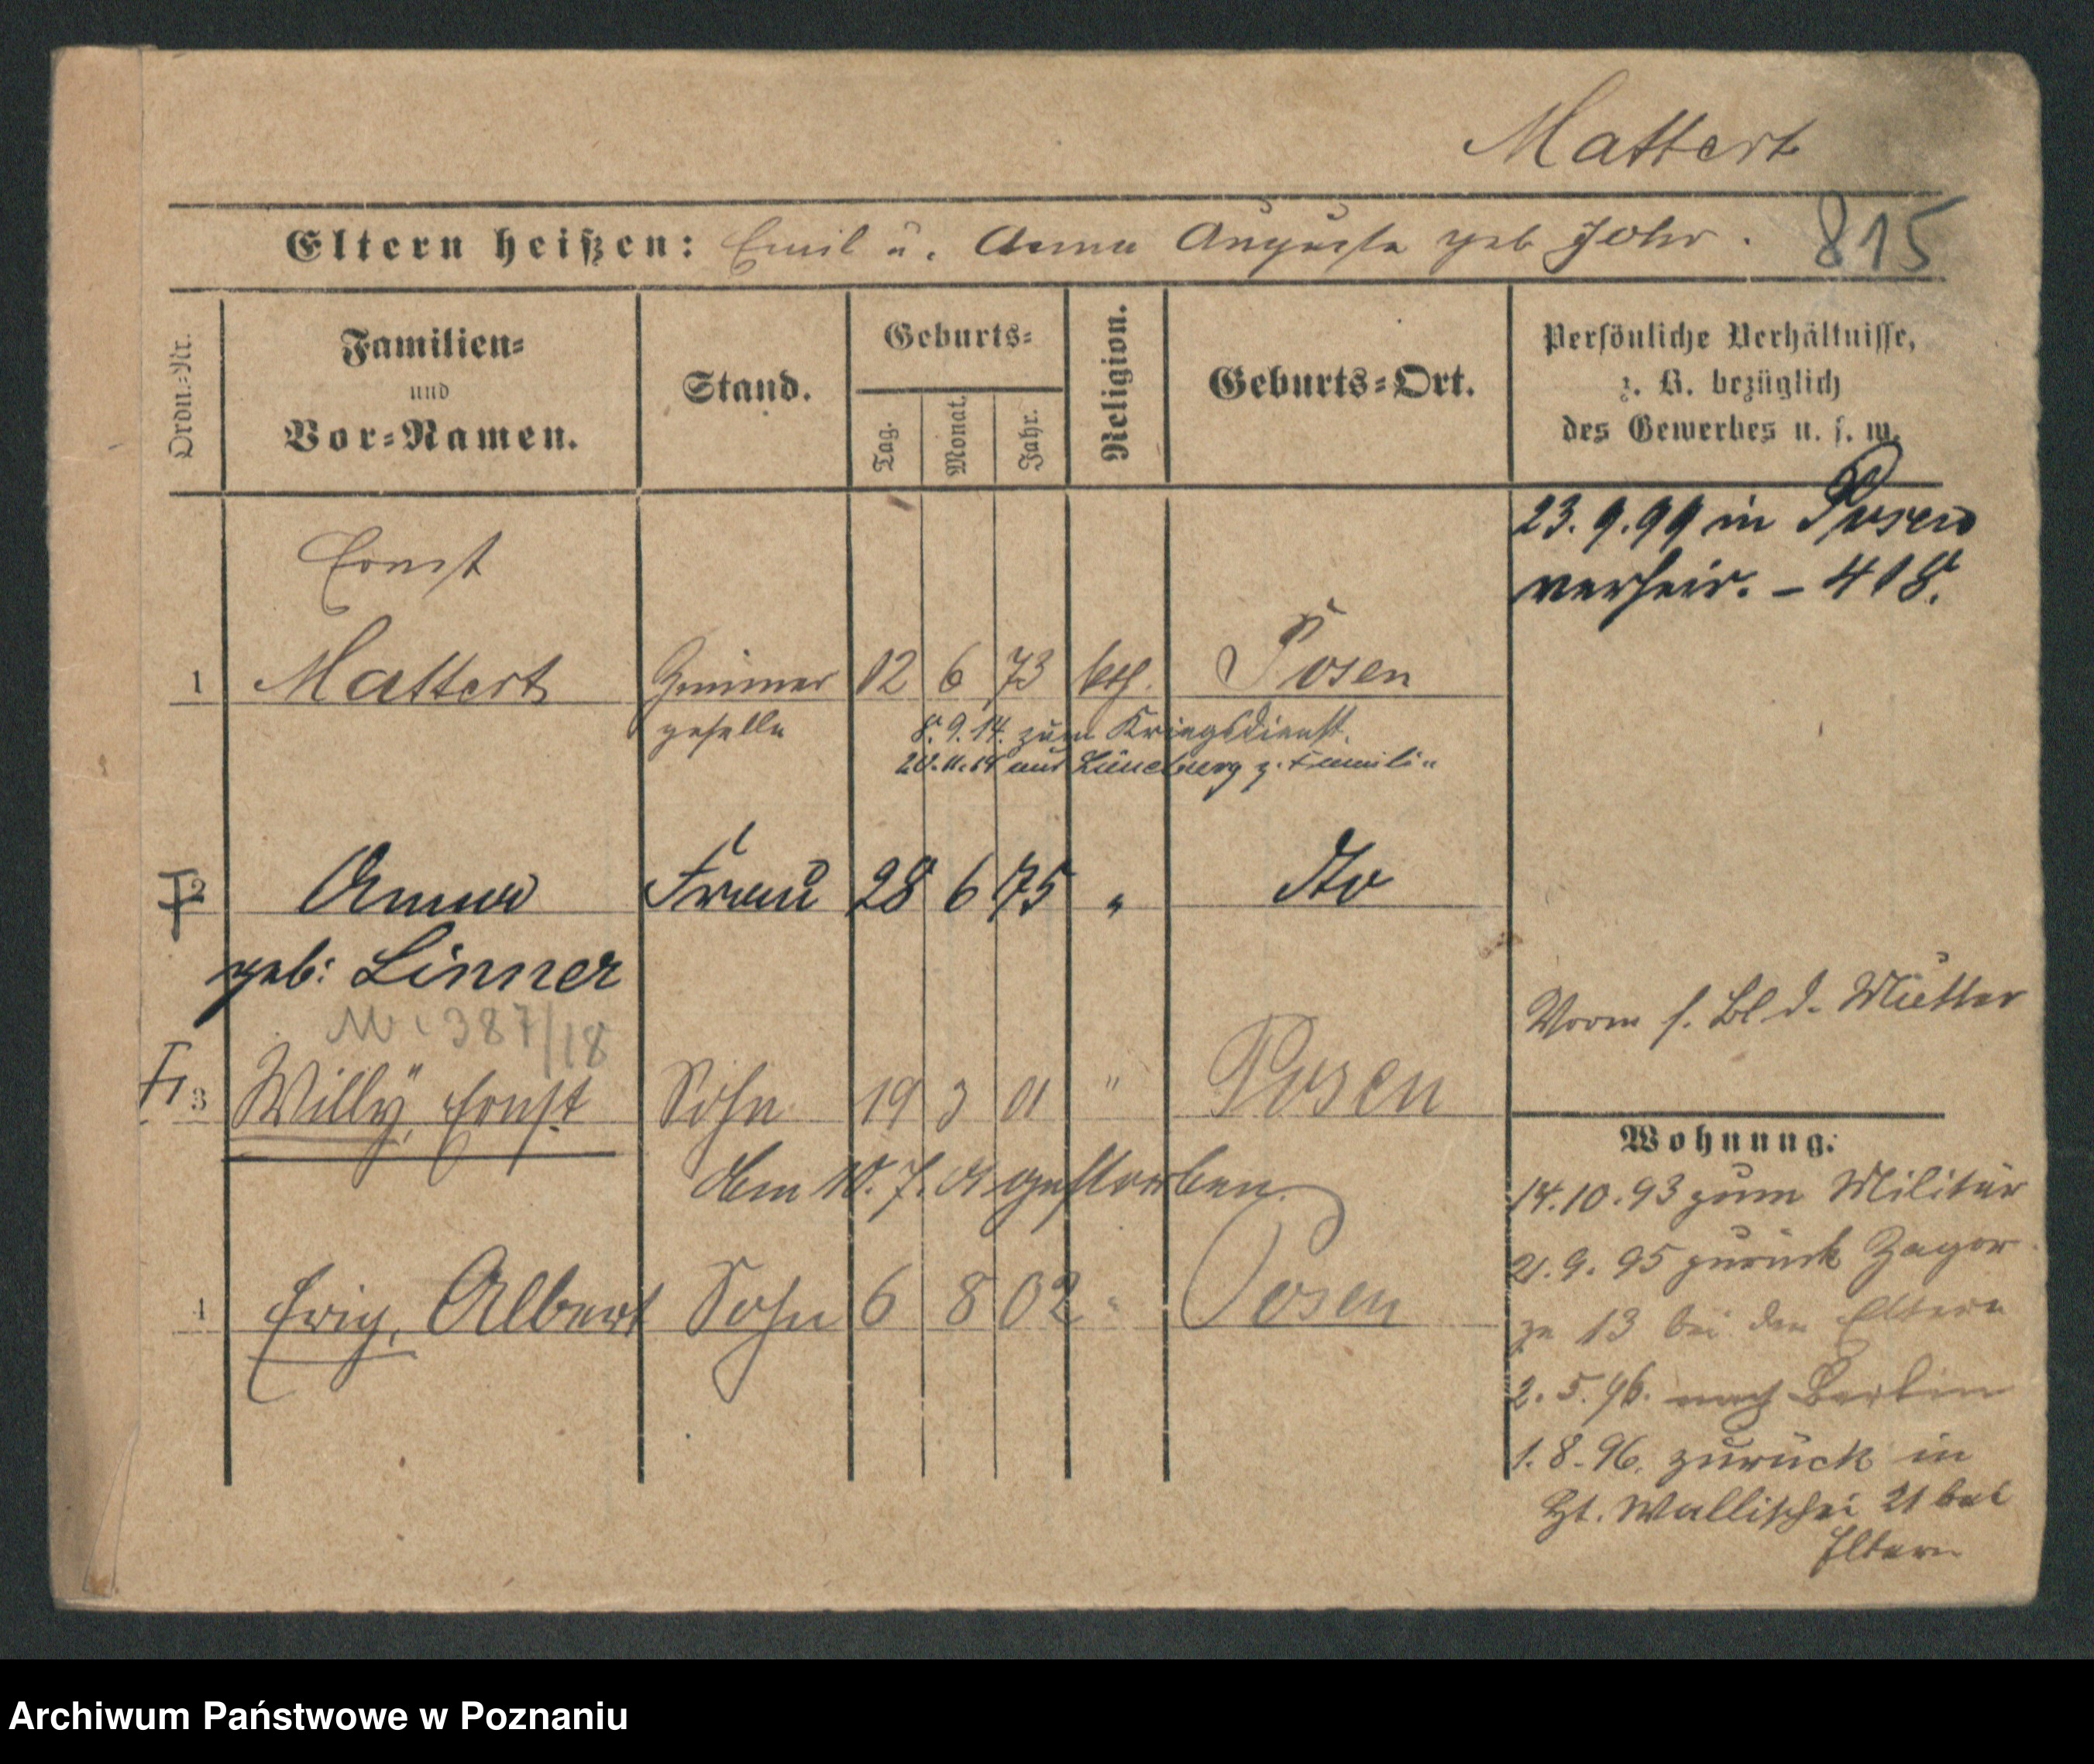 Mattert
Eltern heißen: Emil u. Anna Auguste geb Johr.
815
Ordn.-Nr.
Familien-
und
Vor-Namen.
Stand.
Geburts-
Tag.
Monat.
Jahr.
Religion.
Geburts-Ort.
Persönliche Verhältnisse,
z. B. bezüglich
des Gewerbes u. s. w.
23. 9. 99 in Posen
verheir. - 418.
Ernst
1 Mattert Zimmer 12 6 73 Posen
geselle
8. 9. 14. zum Kriegsdienst.
aus Lüneburg z. Familie
2 Anna Frau 28 6 75 " dto
geb: Linner
387/18
Vorm s. Bl d. Mutter
3 Willy, Ernst Sohn 19 3 01 " Posen
am 10. 7. 01 gestorben.
4 Albert Sohn 6 8 02 " Posen
Wohnung:
14. 10. 93 zum Militär
21. 9. 95 zurück Zagor
ze 13 bei den Eltern
2. 5. 96. nach Berlin
1. 8. 96. zurück in
Wallischei 21 bei
Eltern
Archiwum Państwowe w Poznaniu